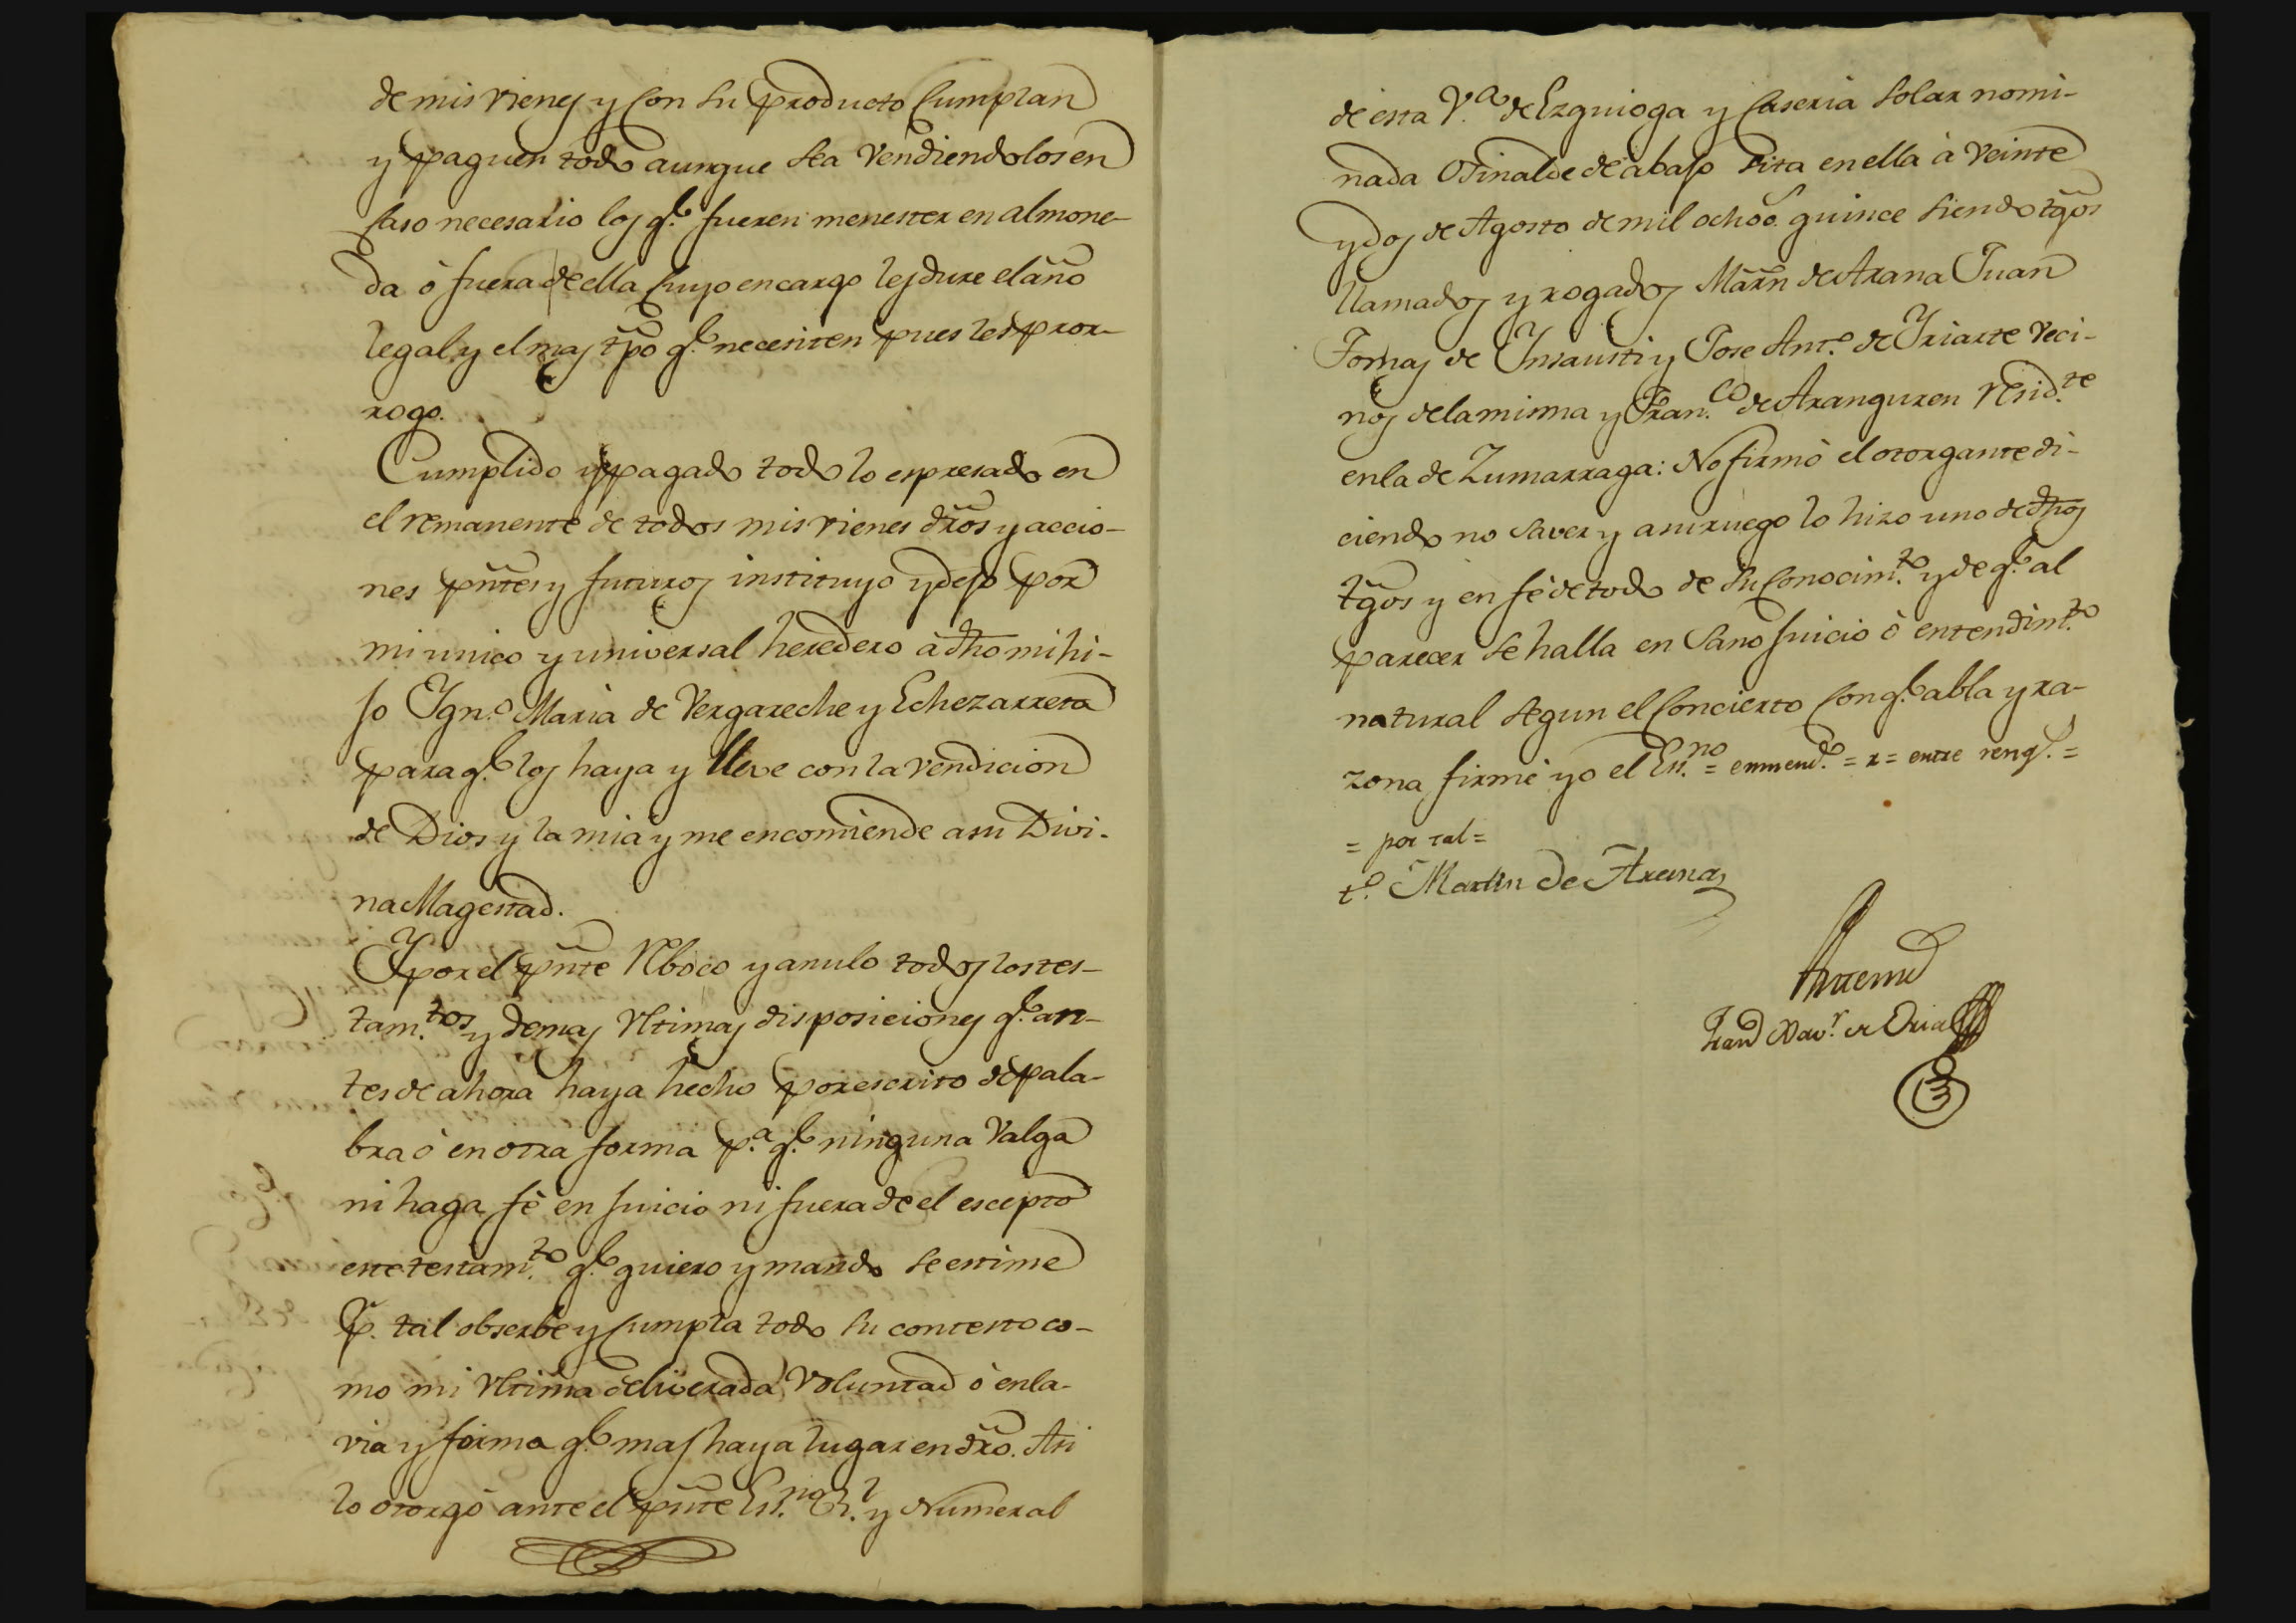 de mis vienes y con su producto cumplan
y paguen todo aunque sea vendiendolos en
caso necesario los q.e fueren menester en almone-
da ò fuera de ella cuyo encargo les dure el año
legal y el mas tpõ q.e necesiten pues les pror-
rogo.
Cumplido y pagado todo lo espresado en
el remanente de todos mis vienes drõs y accio-
nes pñtes y futuros instituyo y dejo por
mi unico y universal heredero à dho mi hi-
jo Ygn.o Maria de Vergareche y Echezarreta
para q.e los haya y lleve con la vendicion
de Dios y la mia y me encomiende a su Divi-
na Magestad.
Y por el pñte reboco y anulo todos los tes-
tam.tos y demas ultimas disposiciones q.e an-
tes de ahora haya hecho por escrito de pala-
bra ò en otra forma p.a q.e ninguna valga
ni haga fè en juicio ni fuera de el escepto
este testam.to q.e quiero y mando se estime
P.r tal observe y cumpla todo su contesto co-
mo mi ultima deliverada voluntad ò en la
via y forma q.e mas haya lugar en drõ. Asi
lo otorgò ante el pñte Es.no R.l y Numeral
de esta V.a de Ezquioga y caseria solar nomi-
nada Osinalde de abajo sita en ella à veinte
y dos de Agosto de mil ochos. quince siendo tgõs
llamados y rogados Marñ de Arana Juan
Tomas de Insausti y Jose Ant.o de Yriarte veci-
nos de la misma y Fran.co de Aranguren resid.te
en la de Zumarraga: No firmò el otorgante di-
ciendo no saver y a su ruego lo hizo uno de dhos
tgõs y en fè de todo de su conocim.to y de q.e al
parecer se halla en sano juicio ò entendim.to
natural segun el concierto con q.e abla y ra-
zona firmè yo el Es.no = enmend.o = r = entre reng.s =
= por tal =
t.o Martin de Arana
Antemi
Fran.co Xav.r de Oria